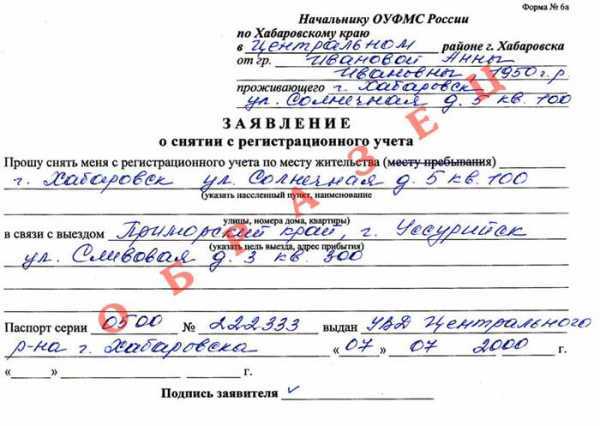 Форма № 6а
Начальнику ОУФМС России
по Хабаровскому краю
в Центральном районе г. Хабаровска
от гр. Ивановой Анны
Ивановны 1950 г.р.
проживающего г. Хабаровск
ул. Солнечная д. 5 кв. 100
ЗАЯВЛЕНИЕ
о снятии с регистрационного учета
Прошу снять меня с регистрационного учета по месту жительства (месту пребывания)
г. Хабаровск ул. Солнечная д. 5 кв. 100
(указать населенный пункт, наименование
улицы, номера дома, квартиры)
в связи с выездом Приморский край, г. Уссурийск
(указать цель выезда, адрес прибытия)
ул. Сливовая д. 3 кв. 300
Паспорт серии 0500 № 222333 выдан УВД Центрального
р-на г. Хабаровска «07» 07 2000 г.
«____» ____________ ________ г.
Подпись заявителя ✓
ОБРАЗЕЦ